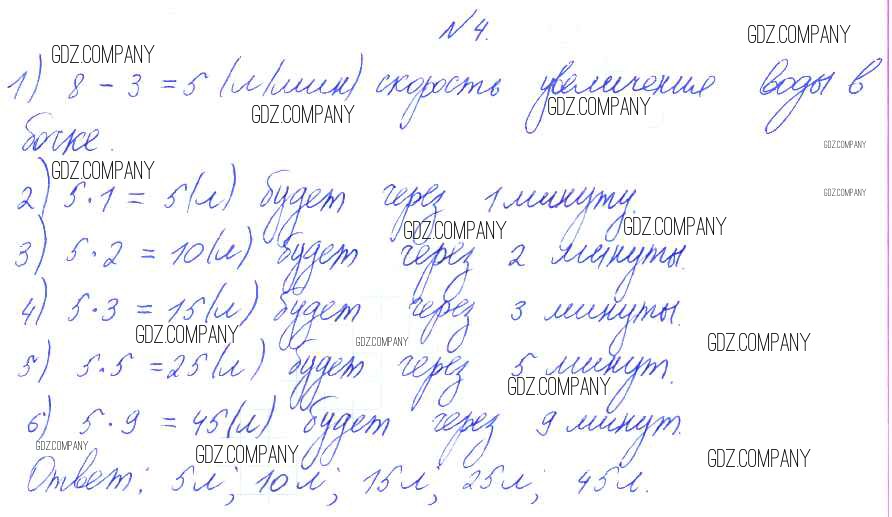 № 4.
GDZ.COMPANY GDZ.COMPANY
1) 8 - 3 = 5 (л/мин) скорость увеличения воды в
GDZ.COMPANY GDZ.COMPANY
бочке. GDZ.COMPANY
GDZ.COMPANY
2) 5·1 = 5 (л) будет через 1 минуту. GDZ.COMPANY
GDZ.COMPANY GDZ.COMPANY
3) 5·2 = 10 (л) будет через 2 минуты.
4) 5·3 = 15 (л) будет через 3 минуты.
GDZ.COMPANY GDZ.COMPANY GDZ.COMPANY
5) 5·5 = 25 (л) будет через 5 минут.
GDZ.COMPANY
6) 5·9 = 45 (л) будет через 9 минут.
GDZ.COMPANY GDZ.COMPANY GDZ.COMPANY
Ответ: 5л; 10л; 15л; 25л; 45л.